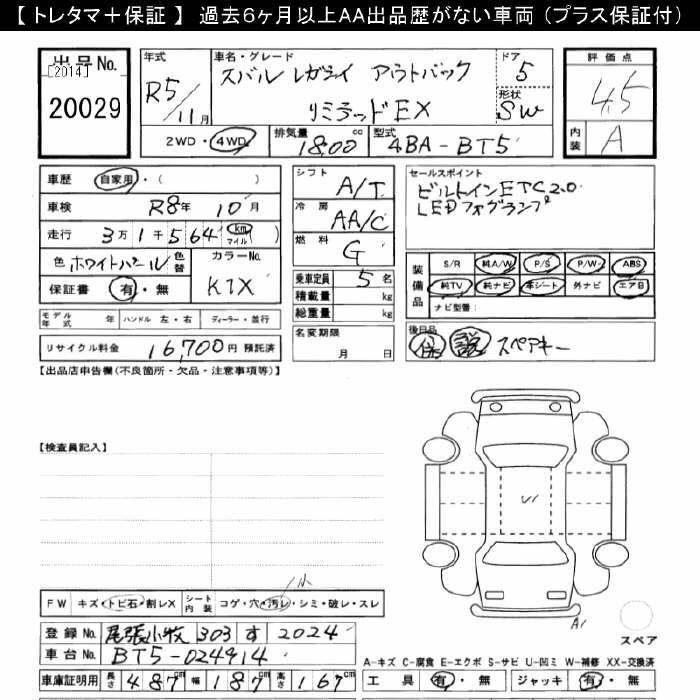 【 トレタマ＋保証 】 過去６ヶ月以上ＡＡ出品歴がない車両（プラス保証付）
出品No. 年式 車名・グレード ドア 評価点
[2014] R5/11月 スバル レガシィ アウトバック 5 4.5
20029 リミテッドEX 形状 SW
2WD・4WD 排気量 1800 cc 型式 4BA-BT5 内装 A
車歴 自家用・( ) シフト A/T セールスポイント
車検 R8年 10月 冷房 AA/C ビルトインETC2.0
走行 3万1千564 (km マイル) 燃料 G LEDフォグランプ
色 ホワイトパール 色替 カラーNo. 乗車定員 5名 装備品 S/R 純A/W P/S P/W ABS
保証書 有・無 K1X 積載量 kg 純TV 純ナビ 本シート 外ナビ エアB
モデル年式 年 ハンドル 左・右 ディーラー・並行 総重量 kg ナビ型番:
リサイクル料金 16,700円 預託済 名変期限 月 日 後日品 保 説 スペアキー
【出品店申告欄(不良箇所・欠品・注意事項等)】
【検査員記入】
小
FW キズ・トビ石・割レX シート内装 コゲ・穴・汚レ・シミ・破レ・スレ
A1
登録No. 尾張小牧 303 す 2024 スペア
車台No. BT5-024914 A-キズ C-腐食 E-エクボ S-サビ U-凹ミ W-補修 XX-交換済
車庫証明用 長さ 487cm 幅 187cm 高さ 167cm 工具 有・無 ジャッキ 有・無